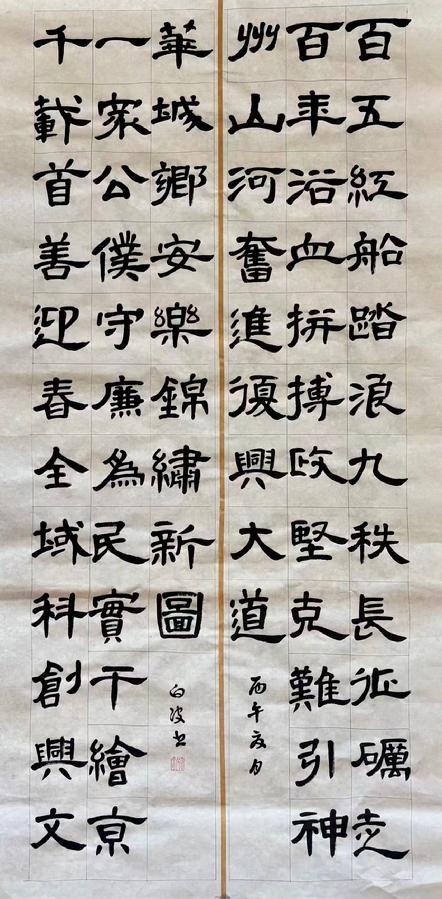 百五紅船踏浪九秩長征礪志
百年浴血拼搏攻堅克難引神
州山河奮進復興大道
丙午月
千載首善迎春全域科創興文
一家公僕守廉為民實干繪京
華城鄉安樂錦繡新圖
白波书